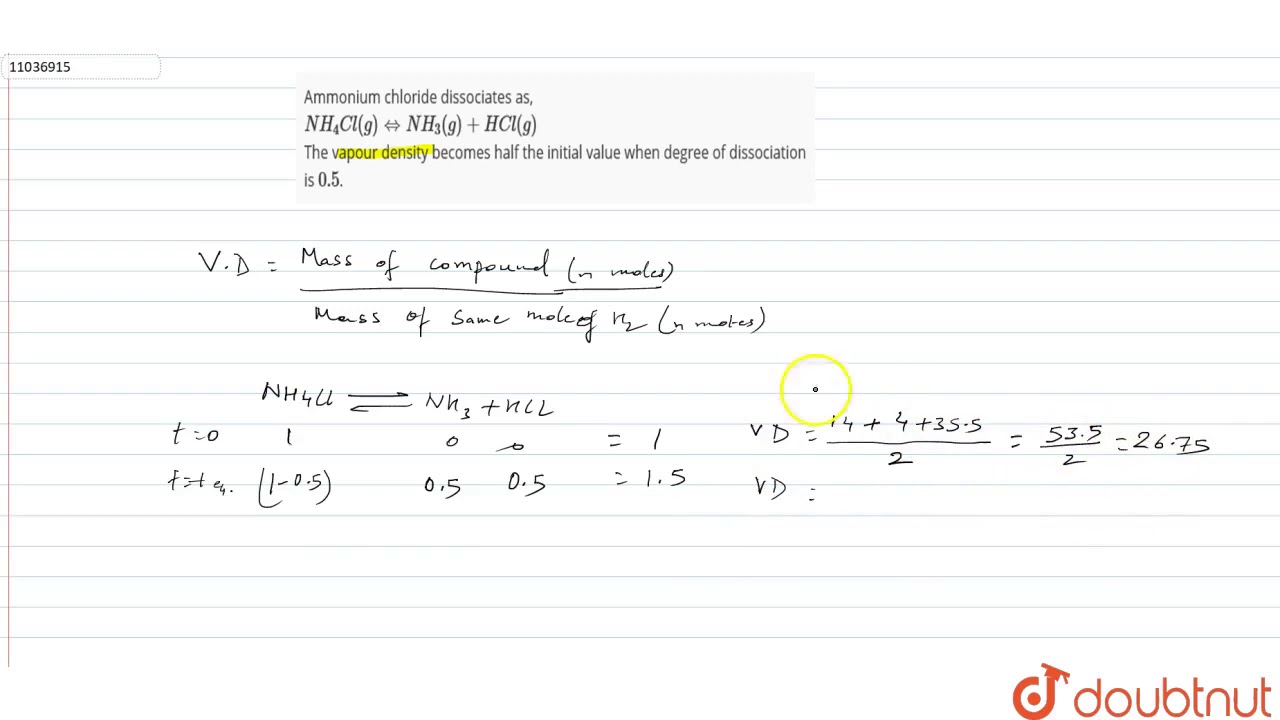 11036915
Ammonium chloride dissociates as,
NH₄Cl(g) ⇔ NH₃(g) + HCl(g)
The vapour density becomes half the initial value when degree of dissociation
is 0.5.
V.D = Mass of compound (n moles)
Mass of same mole of H₂ (n moles)
NH4Cl ⇌ NH₃ + HCl
t=0 1 0 0 = 1 VD = 14 + 4 + 35.5 / 2 = 53.5 / 2 = 26.75
t=t eq. (1-0.5) 0.5 0.5 = 1.5 VD =
doubtnut